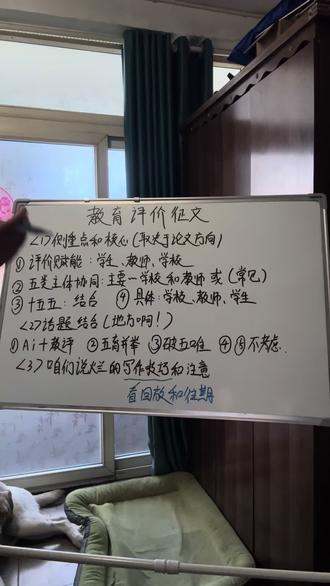 教育评价征文
<1>侧重点和核心(取决于论文方向)
①评价赋能:学生、教师、学校
②五类主体协同:主要一学校和教师或(常见)
③十五五:结合 ④具体:学校、教师、学生
<2>话题结合(地方啊!)
①Ai+教评 ②五育并举 ③破五唯 ④⑤不考虑..
<3>咱们说烂的写作技巧和注意
看回放和往期